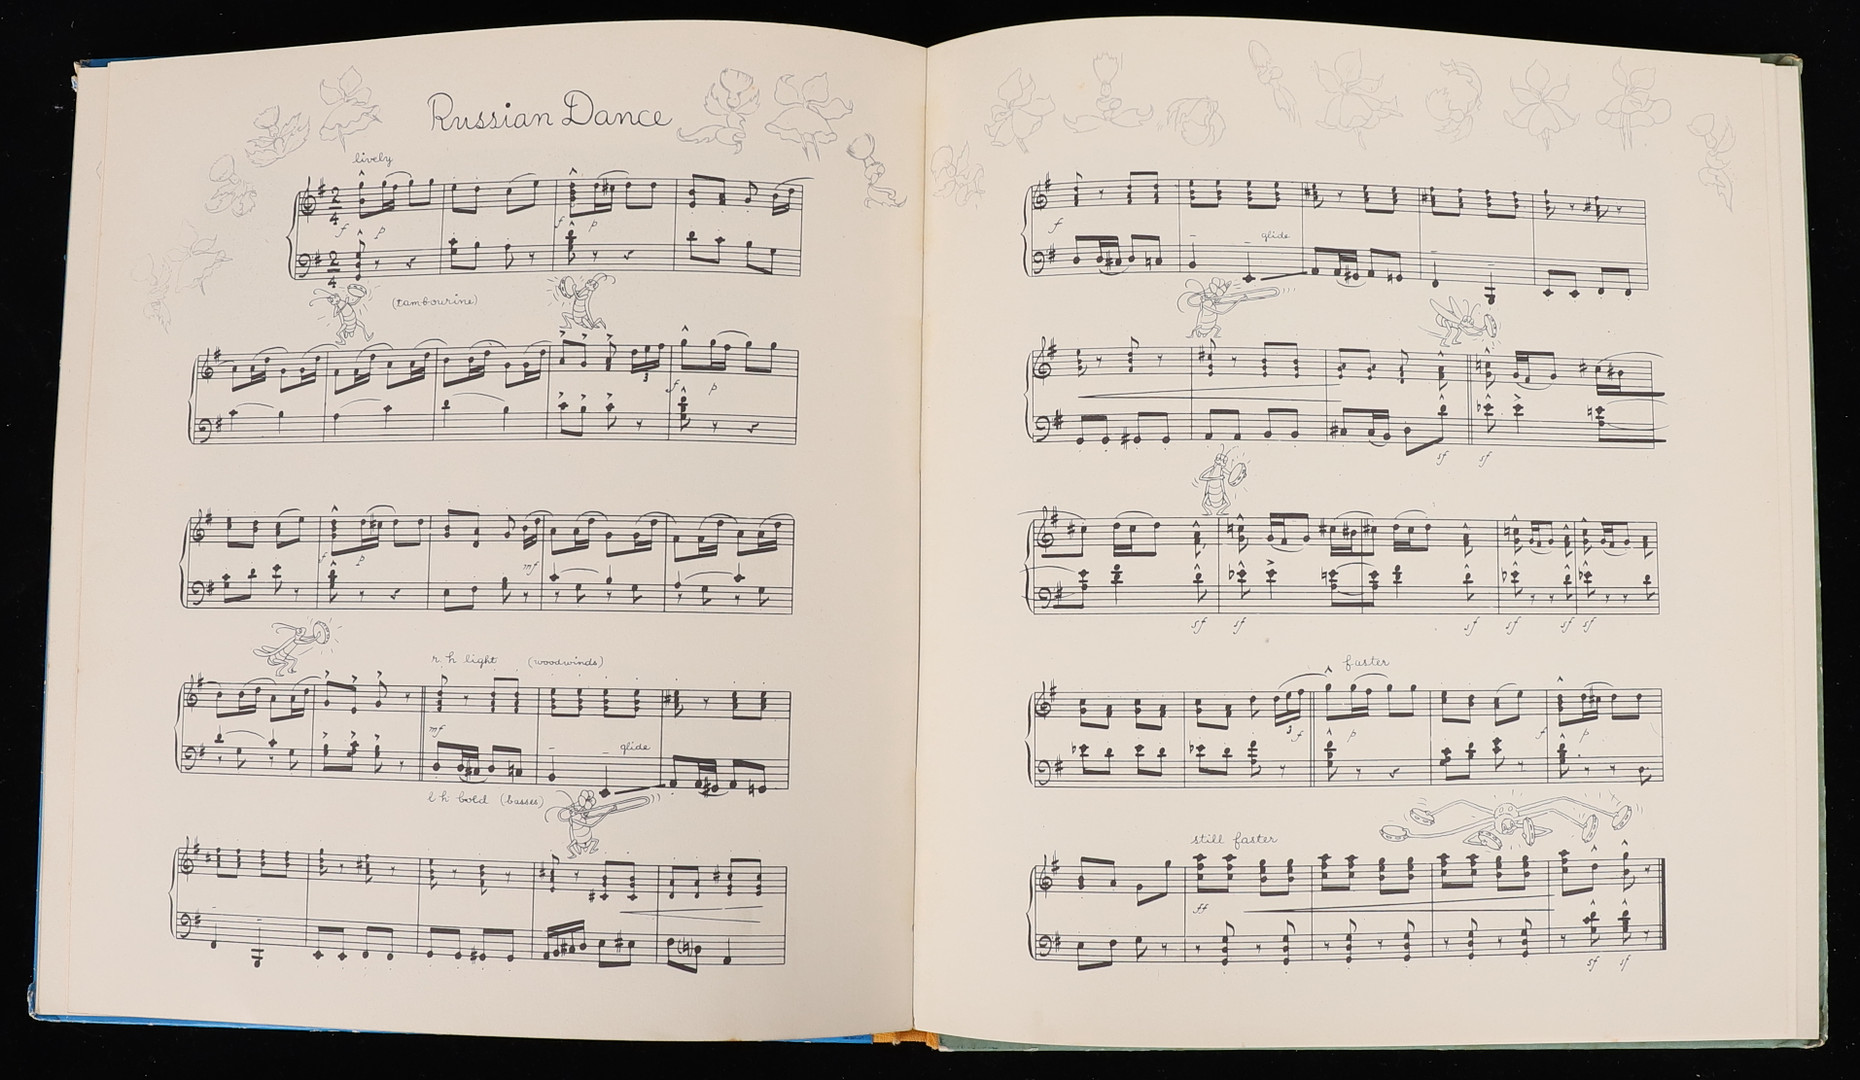 Russian Dance
lively
2 4
f p f p
2 4
(tambourine)
3 f p
f p mf
r. h light (woodwinds)
mf
glide
l h bold (basses)
f
glide
sf sf
sf sf sf sf sf sf
faster
3 f p f p
still faster
ff
sf sf